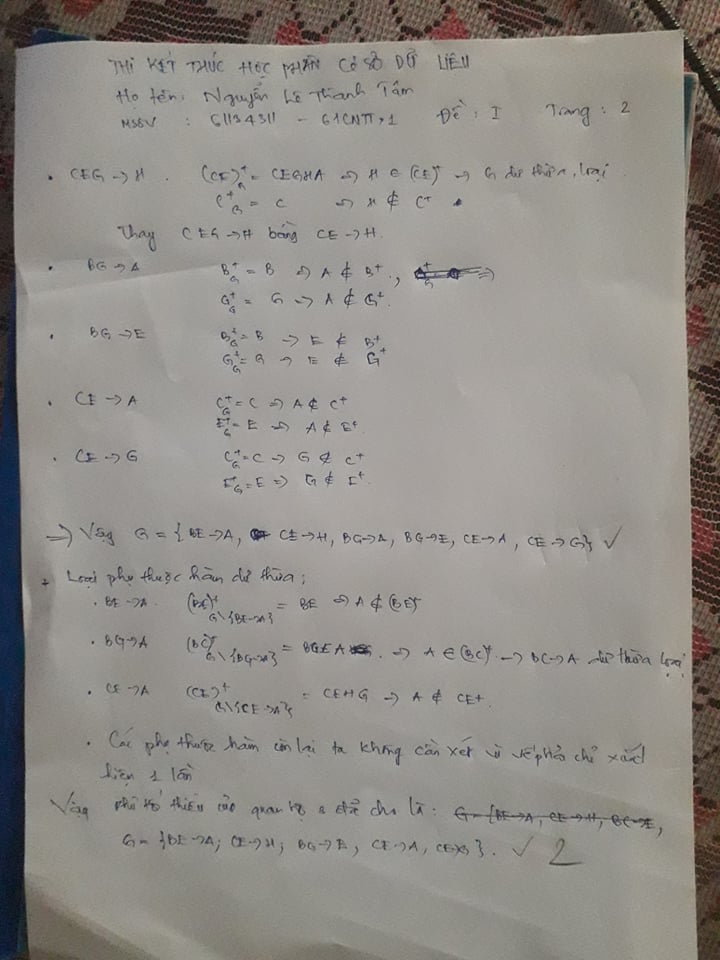 THI KẾT THÚC HỌC PHẦN CƠ SỞ DỮ LIỆU
Họ tên: Nguyễn Lê Thanh Tâm
MSSV : 61134311 - 61CNTT-1 Đề: I Trang: 2
• CEG → H. (CE)⁺G = CEGHA ⇒ H ∈ (CE)⁺ ⇒ G dư thừa, loại
C⁺G = C ⇒ H ∉ C⁺
Thay CEG → H bằng CE → H.
• BG → A B⁺G = B ⇒ A ∉ B⁺,
G⁺G = G ⇒ A ∉ G⁺
• BG → E B⁺G = B ⇒ E ∉ B⁺
G⁺G = G ⇒ E ∉ G⁺
• CE → A C⁺G = C ⇒ A ∉ C⁺
E⁺G = E ⇒ A ∉ E⁺.
• CE → G C⁺G = C ⇒ G ∉ C⁺
E⁺G = E ⇒ G ∉ E⁺.
⇒ Vậy G = {BE→A, CE→H, BG→A, BG→E, CE→A, CE→G} ✓
+ Loại phụ thuộc hàm dư thừa:
• BE→A. (BE)⁺G\{BE→A} = BE ⇒ A ∉ (BE)⁺
• BG→A (BC)⁺G\{BG→A} = BGEA ⇒ A ∈ (BC)⁺ → BC→A dư thừa loại
• CE→A (CE)⁺G\{CE→A} = CEHG ⇒ A ∉ CE⁺.
• Các phụ thuộc hàm còn lại ta không cần xét vì vế phải chỉ xuất
hiện 1 lần
Vậy phủ tối thiểu của quan hệ đề cho là: G = {BE→A, CE→H, BC→E,
G = {BE→A; CE→H; BG→E; CE→A, CE→G}. ✓ 2